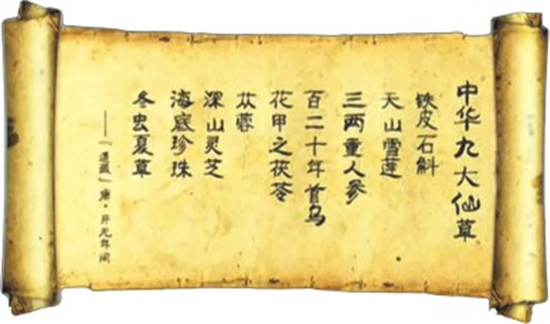 中华九大仙草
铁皮石斛
天山雪莲
三两重人参
百二十年首乌
花甲之茯苓
苁蓉
深山灵芝
海底珍珠
冬虫夏草
——『道藏』唐·开元年间